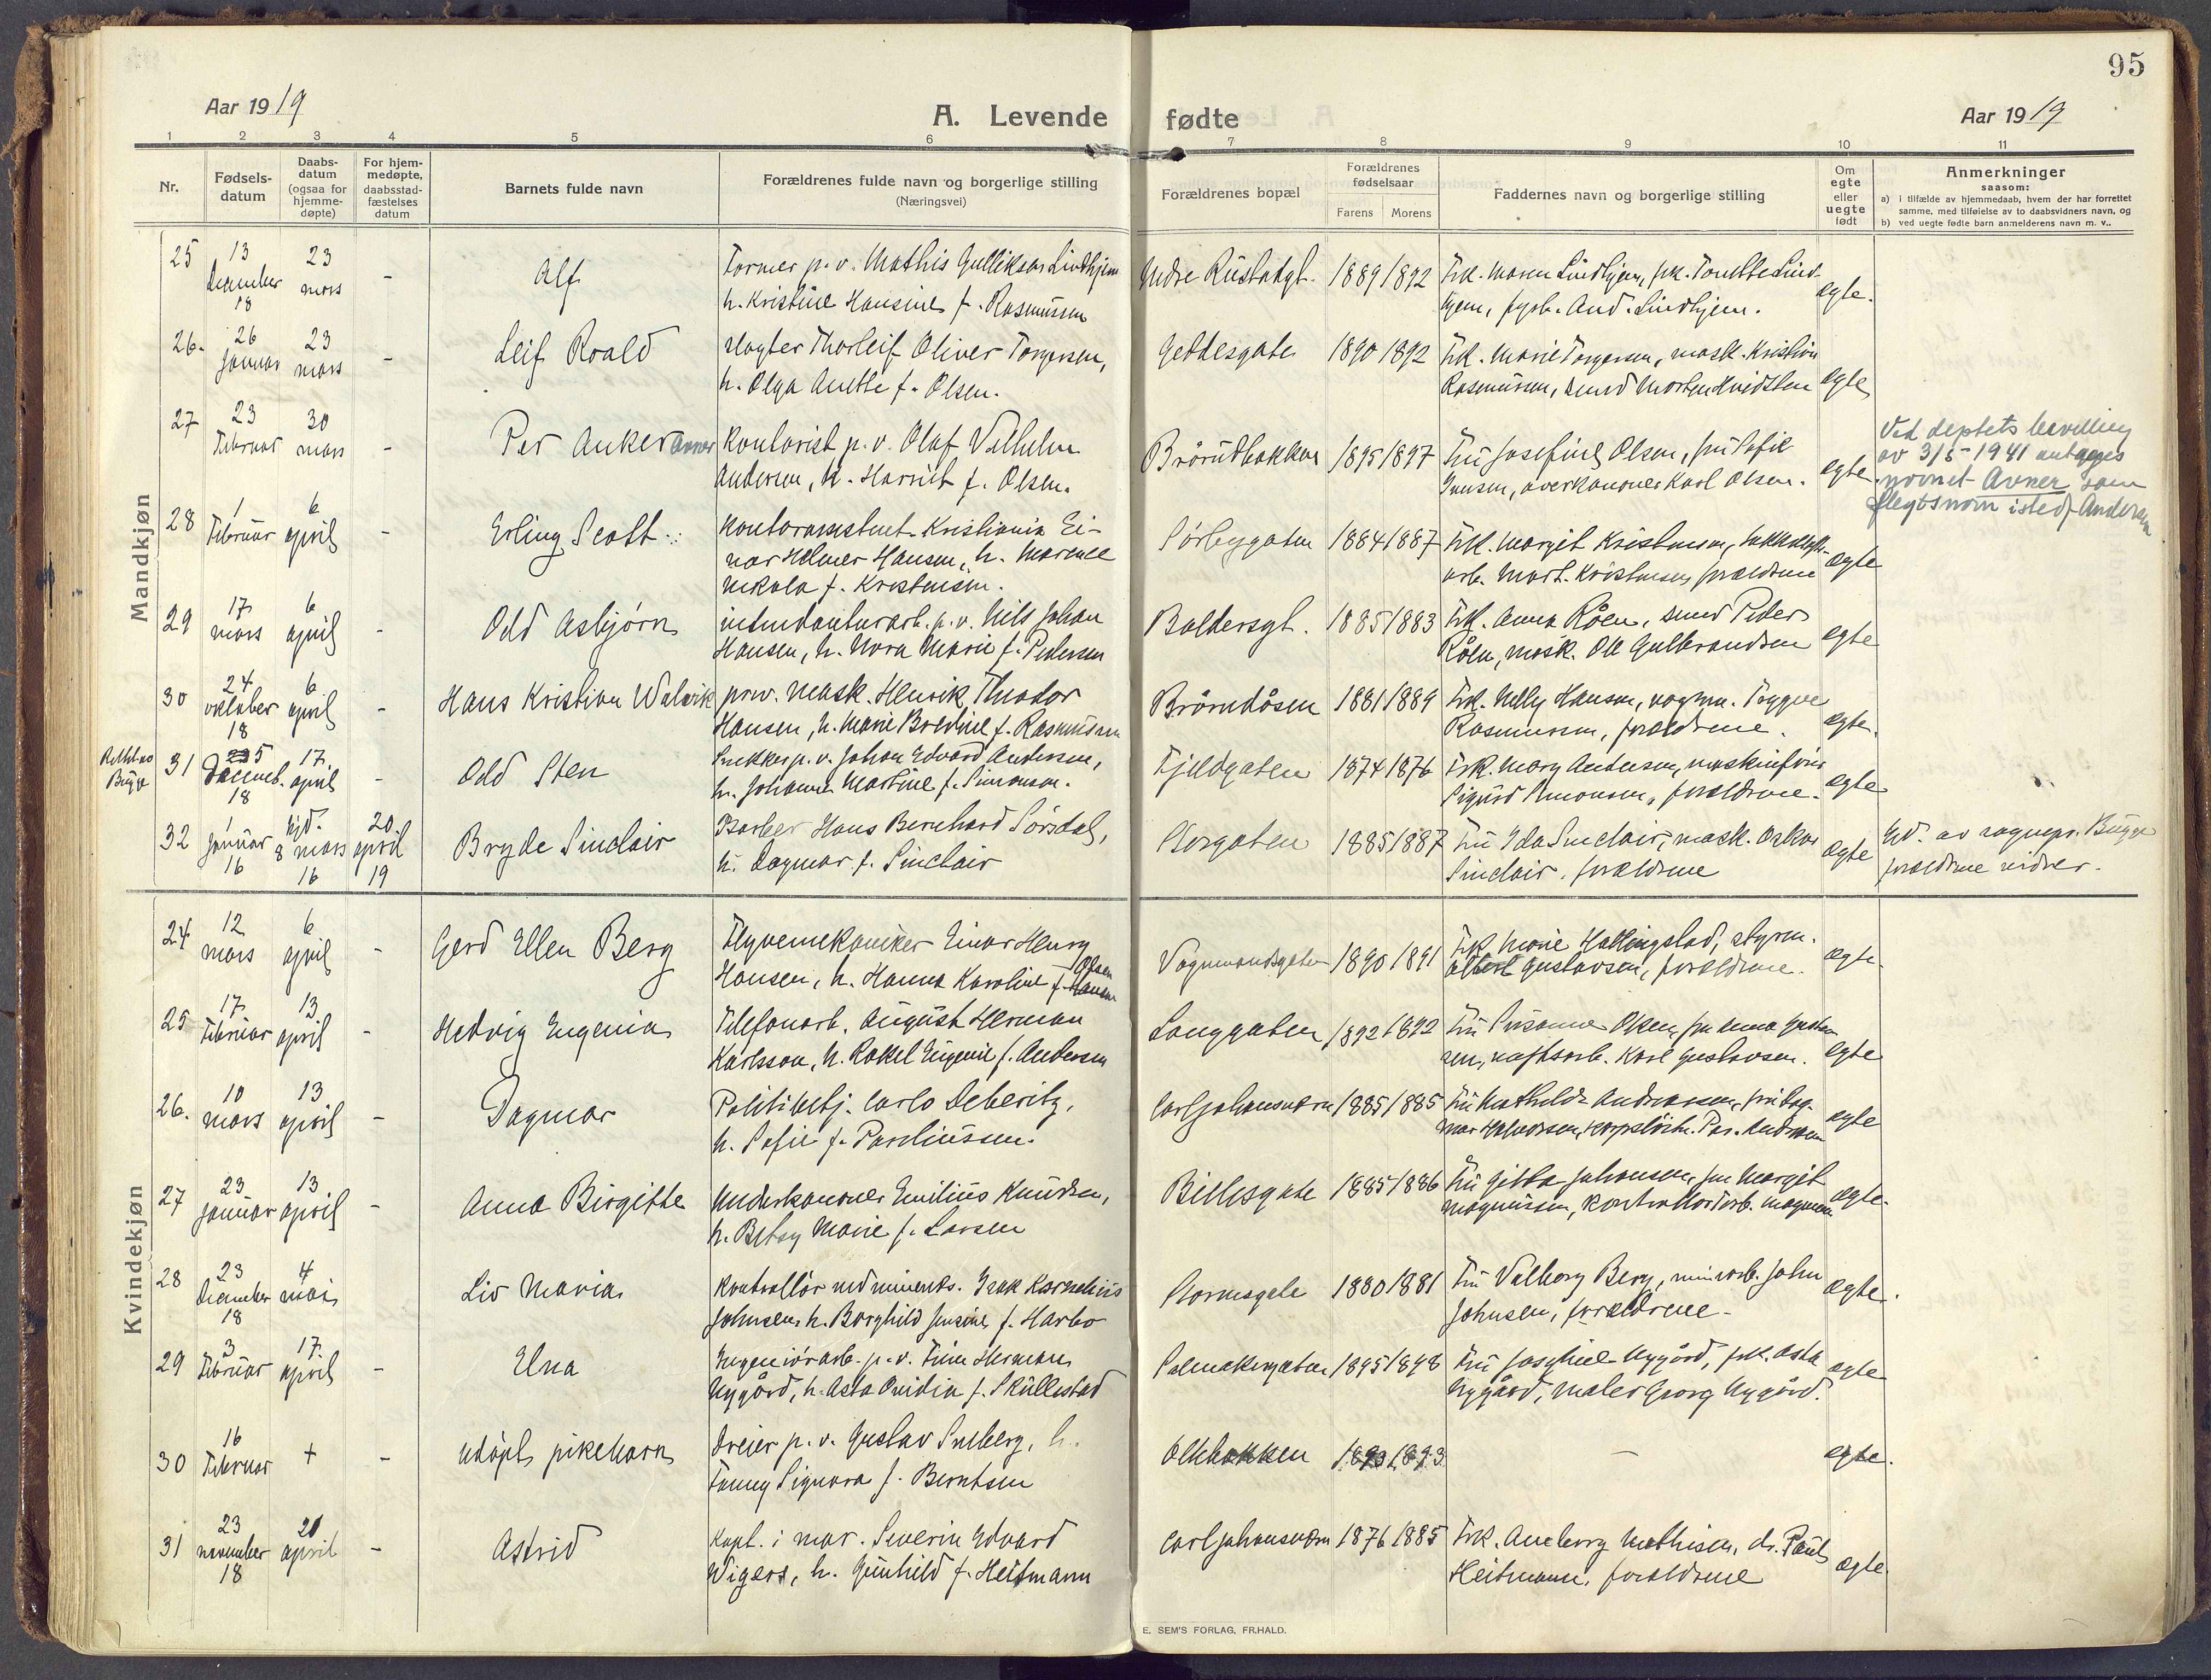 95
Aar 1919
A. Levende fødte
Aar 1919
1 2 3 4 5 6 7 8 9 10 11
Nr.
Fødsels-
datum
Daabs-
datum
(ogsaa for
hjemme-
døpte)
For hjem-
medøpte,
daabsstad-
fæstelses
datum
Barnets fulde navn
Forældrenes fulde navn og borgerlige stilling
(Næringsvei)
Forældrenes bopæl
Forældrenes
fødselsaar
Farens Morens
Faddernes navn og borgerlige stilling
Om
egte
eller
uegte
født
Anmerkninger
saasom:
a) i tilfælde av hjemmedaab, hvem der har forrettet
samme, med tilføielse av to daabsvidners navn, og
b) ved uegte fødte barn anmelderens navn m. v..
Mandkjøn
25 13 December 18 23 mars - Alf
Former p.v. Mathis Gulliksen Lindhjem
h. Kristine Hansine f. Rasmussen
Indre Rustadgt. 1889 1892
Frk. Maren Lindhjem, frk. Tomette Lind-
hjem, fyrb. And. Lindhjem. egte.
26. 26 Januar 23 mars - Leif Roald
Slagter Thorleif Oliver Torgersen,
h. Olga Anette f. Olsen.
Geddesgate 1890 1892
Frk. Marie Torgersen, mask. Kristian
Rasmussen, smed Morten Kvidsten egte
27 23 Februar 30 mars - Per Anker Avner
Kontorist p.v. Olaf Vilhelm
Andersen, h. Harriet f. Olsen.
Brårudbakken 1895 1897
Fru Josefine Olsen, fru Sofie
Jensen, overkanoner Karl Olsen. egte
Ved deptets bevilling
av 3/5-1941 antages
navnet Avner som
slegtsnavn istedf. Andersen
28 1 Februar 6 april - Erling Scott
Kontorassistent Kristiania Ei-
nar Helmer Hansen, h. Marenee
Nikola f. Kristensen.
Sørbygaten 1884 1887
Frk. Margit Kristensen,
arb. Mart. Kristensen, forældrene egte
29 17 mars 6 april - Odd Asbjørn
intendanturarb. p.v. Nils Johan
Hansen, h. Nora Marie f. Pedersen
Baldersgt. 1885 1883
Frk. Anna Råen, smed Peder
Råen, mask. Ole Gulbrandsen egte
30 24 oktober 18 6 april - Hans Kristian Walvik
prov. mask. Henrik Theodor
Hansen, h. Marie Bredine f. Rasmussen
Brårudåsen 1881 1889
Frk. Nelly Hansen, vognm. Trygve
Rasmussen, forældrene. egte.
Bugge
31 5 Decemb. 18 17 april - Odd Sten
Snekker p.v. Johan Edvard Andersen,
h. Johanne Martine f. Simonsen.
Fjeldgaten 1874 1876
Frk. Mary Andersen, maskinfører
Sigurd Simonsen, forældrene. egte
32 1 Januar 16 hjd. 8 mars 16 20 april 19 Bryde Sinclair
Barber Hans Bernhard Sørsdal,
h. Dagmar f. Sinclair
Storgaten 1885 1887
Fru Ida Sinclair, mask. Oskar
Sinclair, forældrene egte
Hjd. av sognepr. Bugge
forældrene vidner.
Kvindekjøn
24 12 mars 6 april - Gerd Ellen Berg
Flyvemekaniker Einar Henry
Hansen, h. Hanna Karoline f. Hansen Olsen
Vognmandsgaten 1890 1891
Frk. Marie Hallingstad, styrm.
Albert Gustavsen, forældrene. egte.
25 17 Februar 13 april - Hedvig Eugenia
Telefonarb. August Herman
Karlsson, h. Rakel Eugenie f. Andersen
Langgaten 1892 1892
Fru Susanne Olsen, fru Anna Gustav-
sen, verftsarb. Karl Gustavsen. egte
26. 10 mars 13 april - Dagmar
Politibetj. Carlo Deberitz,
h. Sofie f. Paveliussen.
Carljohansværn 1885 1885
Fru Mathilde Andreassen, fru Dag-
mar Halvorsen, Andreassen egte
27 23 Januar 13 april - Anna Birgitte
Underkanoner Emilius Knudsen,
h. Betsy Marie f. Larsen
Billesgate 1885 1886
Fru Gitta Johansen, fru Margit
Magnussen, Magnussen egte.
28 23 December 18 4 mai - Liv Maria
Kontrollør ved minevks. Isak Kornelius
Johnsen, h. Borghild Jensine f. Harbo
Stormsgate 1880 1881
Fru Valborg Berg, minearb. John
Johnsen, forældrene. egte.
29 3 Februar 17 april - Elna
Ingeniørarb. p.v. Finn Herman
Nygård, h. Asta Ovidia f. Skullestad
Salmakergaten 1895 1898
Fru Josefine Nygård, frk. Asta
Nygård, maler Georg Nygård. egte
30 16 Februar + - udøpt pikebarn
Dreier p.v. Gustav Sneberg, h.
Fanny Signora f. Berntsen
Olebakken 1893 1893 - egte.
31 23 november 18 21 april - Astrid
Kapt. i mar. Severin Edvard
Wigers, h. Gunhild f. Heitmann
Carljohansværn 1876 1885
Frk. Aneborg Mathisen, dr. Paul
Heitmann, forældrene egte.
E. SEM'S FORLAG, FR.HALD.